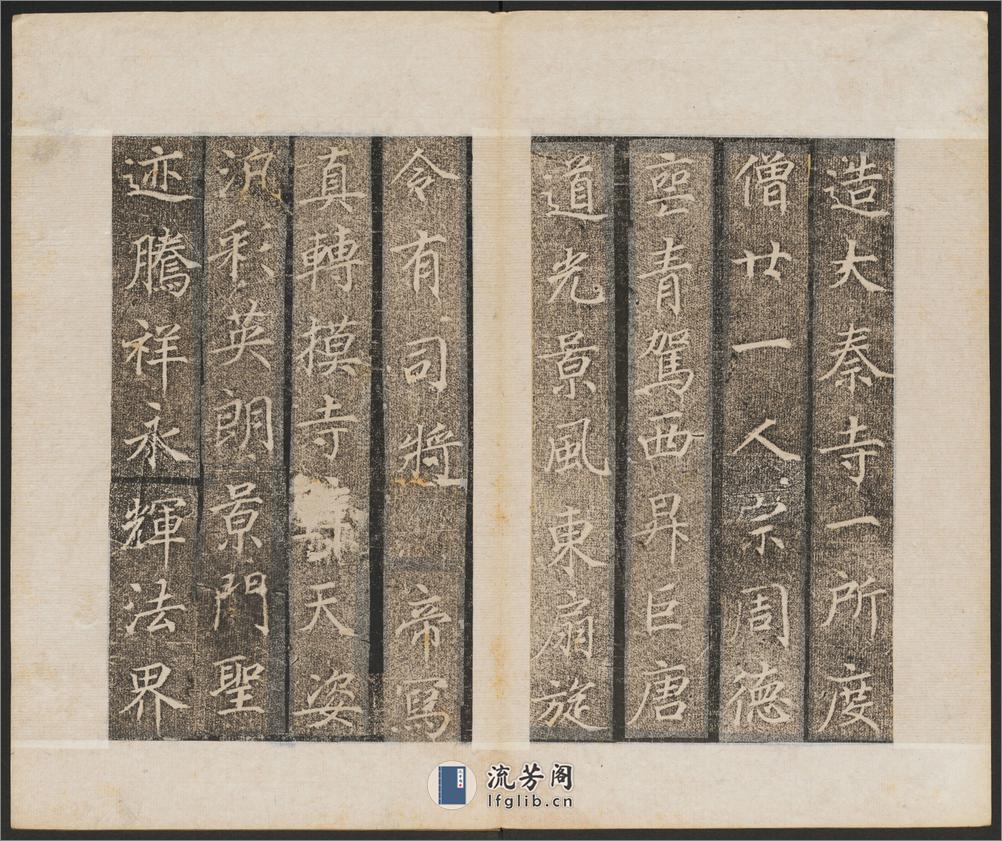 造大秦寺一所度
僧廿一人宗周德
喪青駕西昇巨唐
道光景風東扇旋
令有司將 帝寫
真轉摸寺 天姿
汎彩英朗景門聖
迹騰祥永輝法界
流芳阁
lfglib.cn